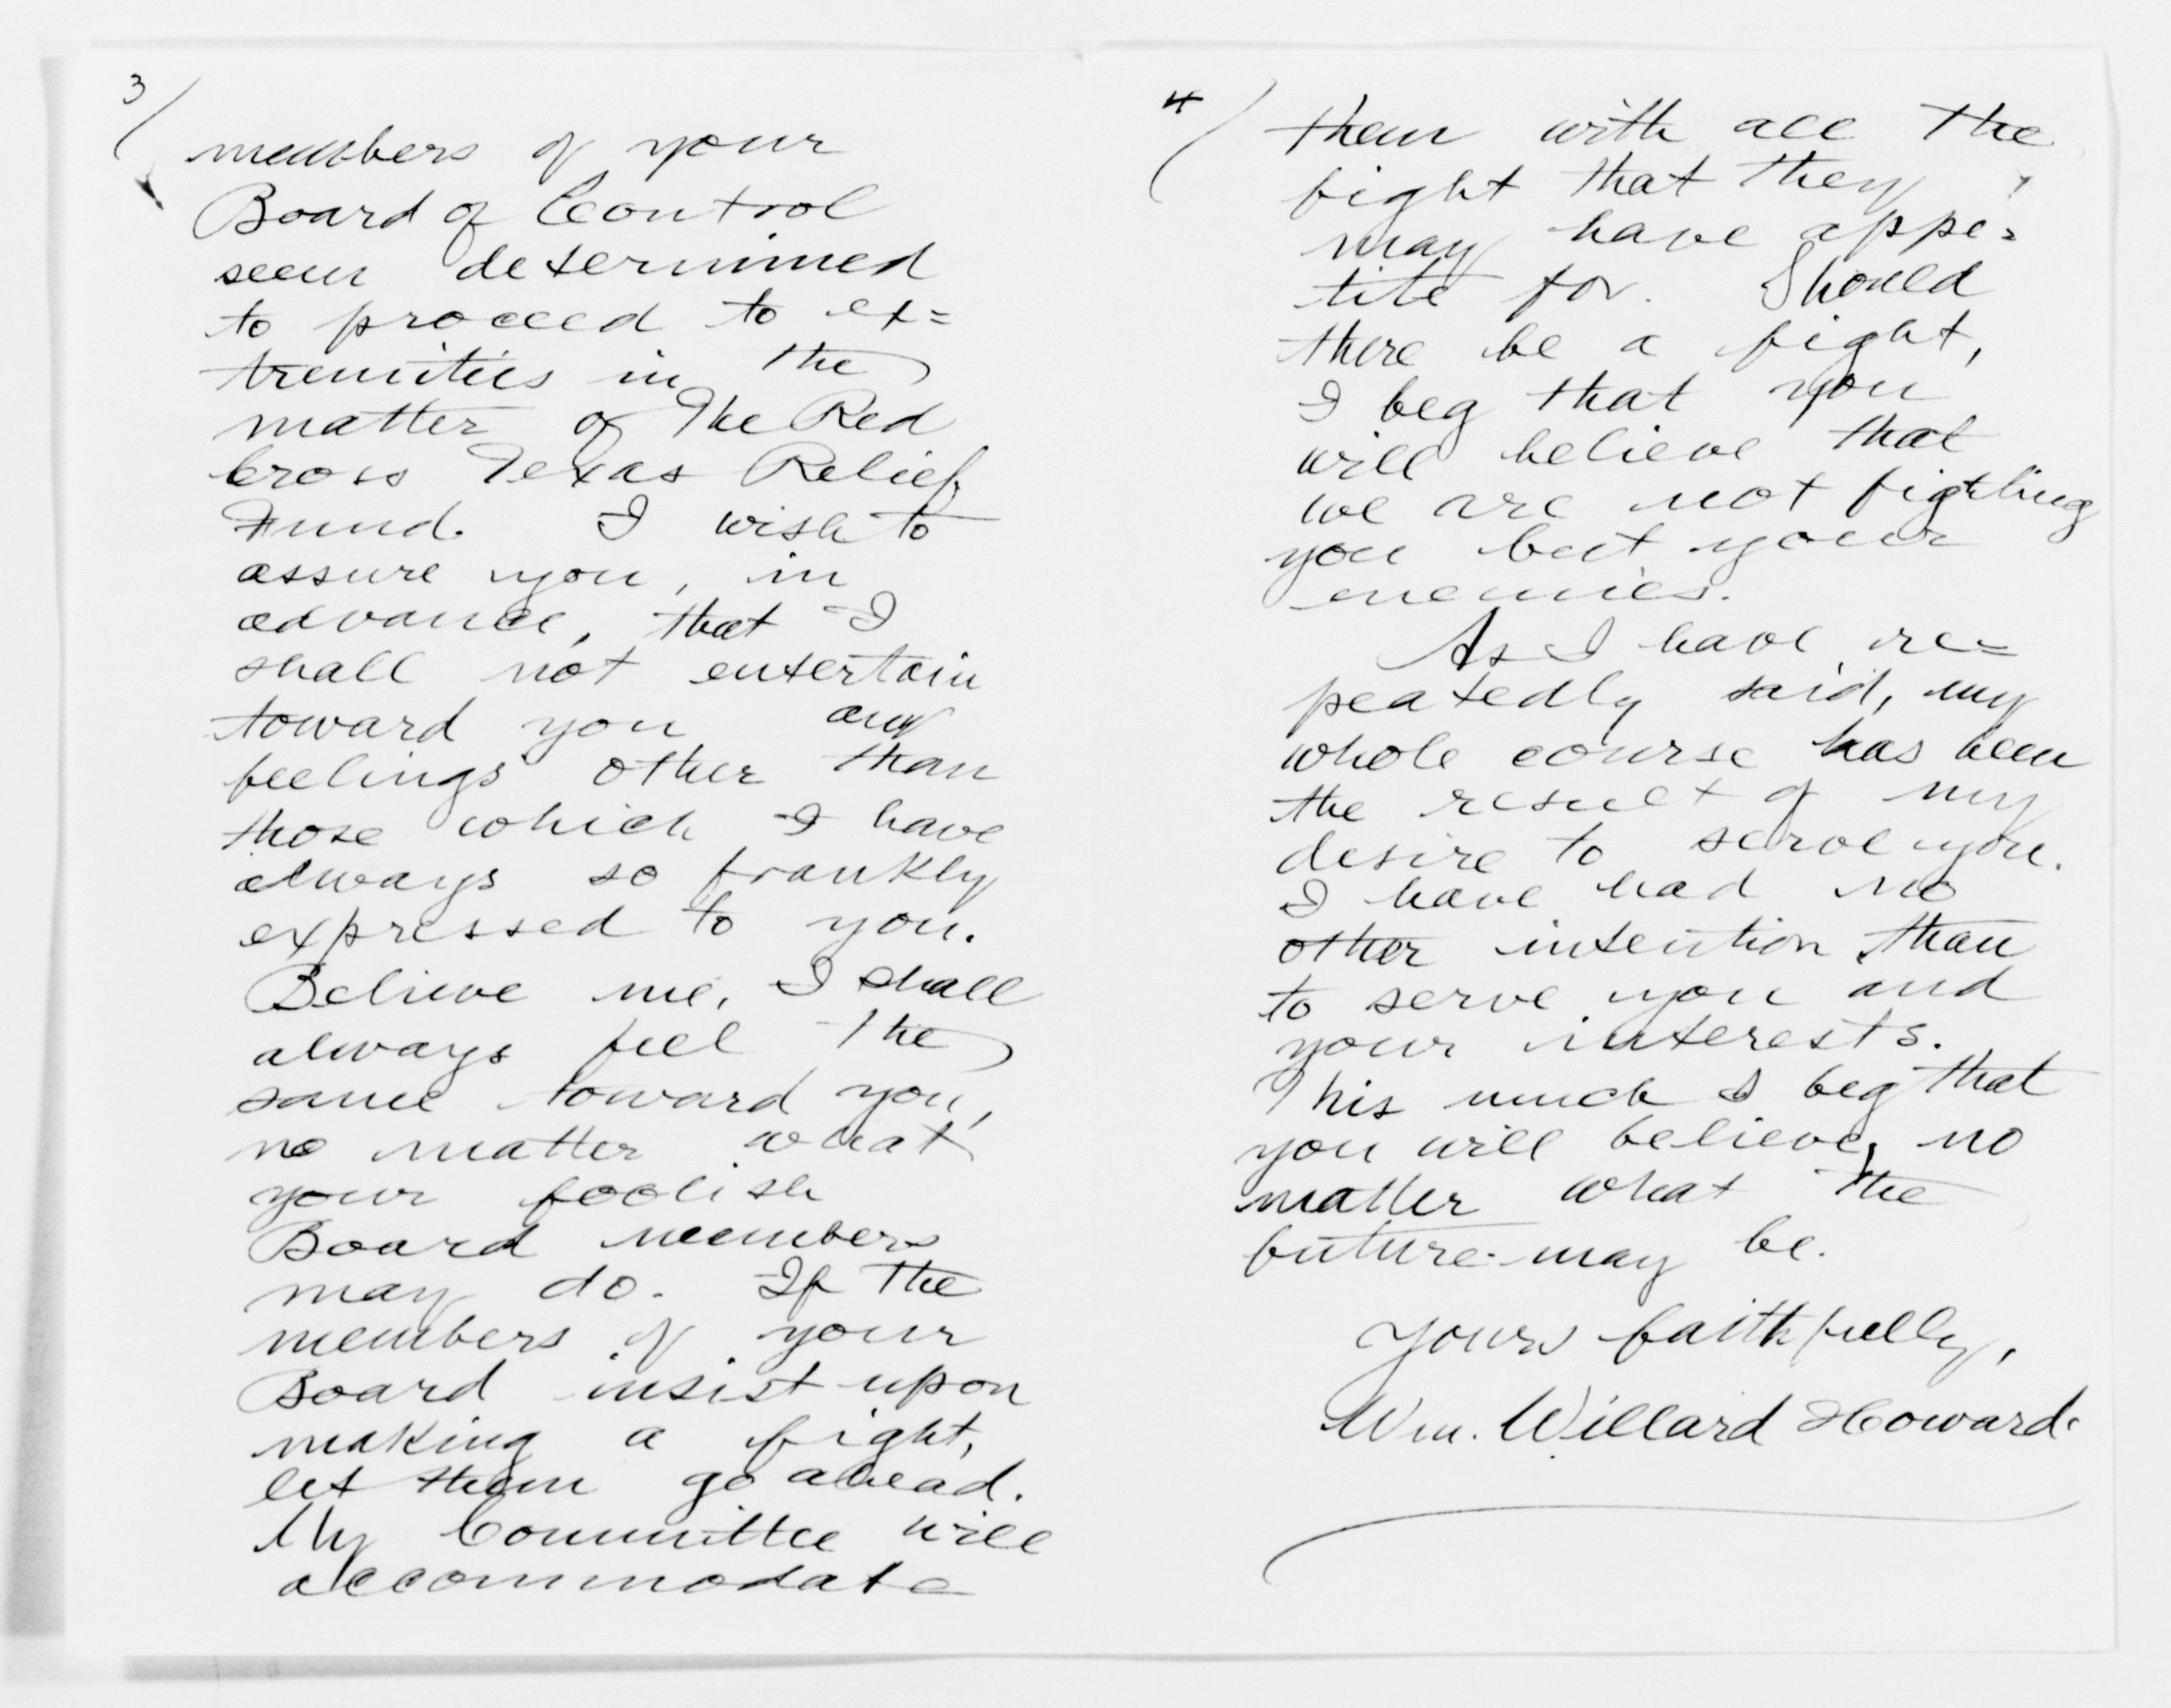 3/
members of your
Board of Control
seem determined
to proceed to ex=
tremities in the
matter of The Red
Cross Texas Relief
Fund. I wish to
assure you, in
advance, that I
shall not entertain
toward you any
feelings other than
those which I have
always so frankly
expressed to you.
Believe me, I shall
always feel the
same toward you,
no matter what
your foolish
Board members
may do. If the
members of your
Board insist upon
making a fight,
let them go ahead.
My Committee will
accommodate
4/
them with all the
fight that they
may have appe=
tite for. Should
there be a fight,
I beg that you
will believe that
we are not fighting
you but your
enemies.
As I have re=
peatedly said, my
whole course has been
the result of my
desire to serve you.
I have had no
other intention than
to serve you and
your interests.
This much I beg that
you will believe, no
matter what the
future may be.
Yours faithfully,
Wm. Willard Howard.